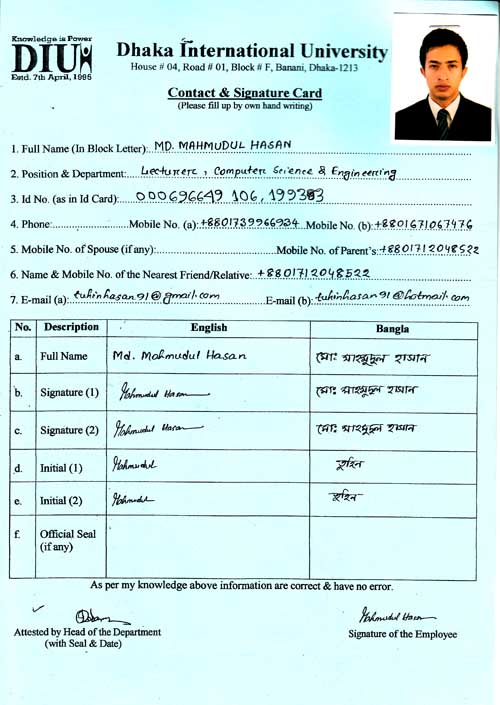 Knowledge is Power
DIU
Estd. 7th April, 1995
Dhaka International University
House # 04, Road # 01, Block # F, Banani, Dhaka-1213
Contact & Signature Card
(Please fill up by own hand writing)
1. Full Name (In Block Letter): MD. MAHMUDUL HASAN
2. Position & Department: Lecturer, Computer Science & Engineering
3. Id No. (as in Id Card): 000696649 106, 199383
4. Phone: Mobile No. (a): +8801739966934 Mobile No. (b): +8801671067476
5. Mobile No. of Spouse (if any): Mobile No. of Parent's: +8801712048522
6. Name & Mobile No. of the Nearest Friend/Relative: +8801712048522
7. E-mail (a): tuhinhasan91@gmail.com E-mail (b): tuhinhasan91@hotmail.com
No. Description English Bangla
a. Full Name Md. Mahmudul Hasan মোঃ মাহমুদুল হাসান
b. Signature (1) Mahmudul Hasan মোঃ মাহমুদুল হাসান
c. Signature (2) Mahmudul Hasan মোঃ মাহমুদুল হাসান
d. Initial (1) Mahmudul তুহিন
e. Initial (2) Mahmudul তুহিন
f. Official Seal
(if any)
As per my knowledge above information are correct & have no error.
Mahmudul Hasan
Attested by Head of the Department Signature of the Employee
(with Seal & Date)